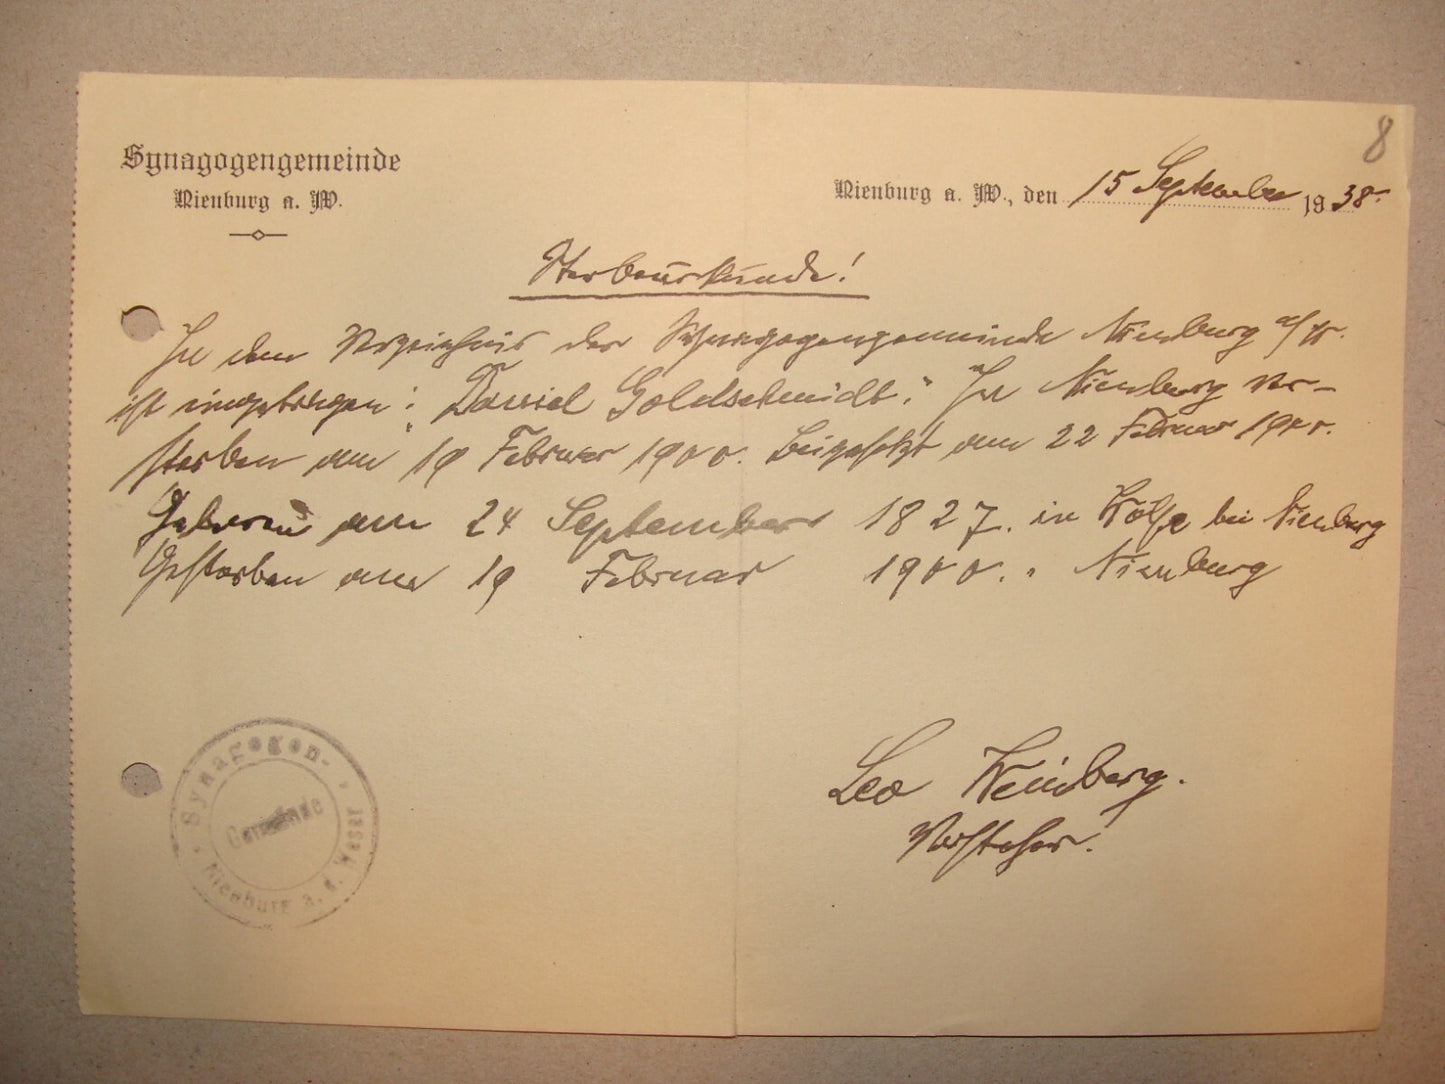 8
Synagogengemeinde
Nienburg a. W.
Nienburg a. W., den 15 September 1938.
Sterbeurkunde!
In dem Verzeichnis der Synagogengemeinde Nienburg a/W.
ist eingetragen: "David Goldschmidt." In Nienburg ver-
storben am 19 Februar 1900. Beigesetzt am 22 Februar 1900.
Geboren am 24 September 1827. in Wölpe bei Nienburg
Gestorben am 19 Februar 1900. " Nienburg
Leo Weinberg.
Vorsteher.
Synagogen-
Gemeinde
Nienburg a. d. Weser